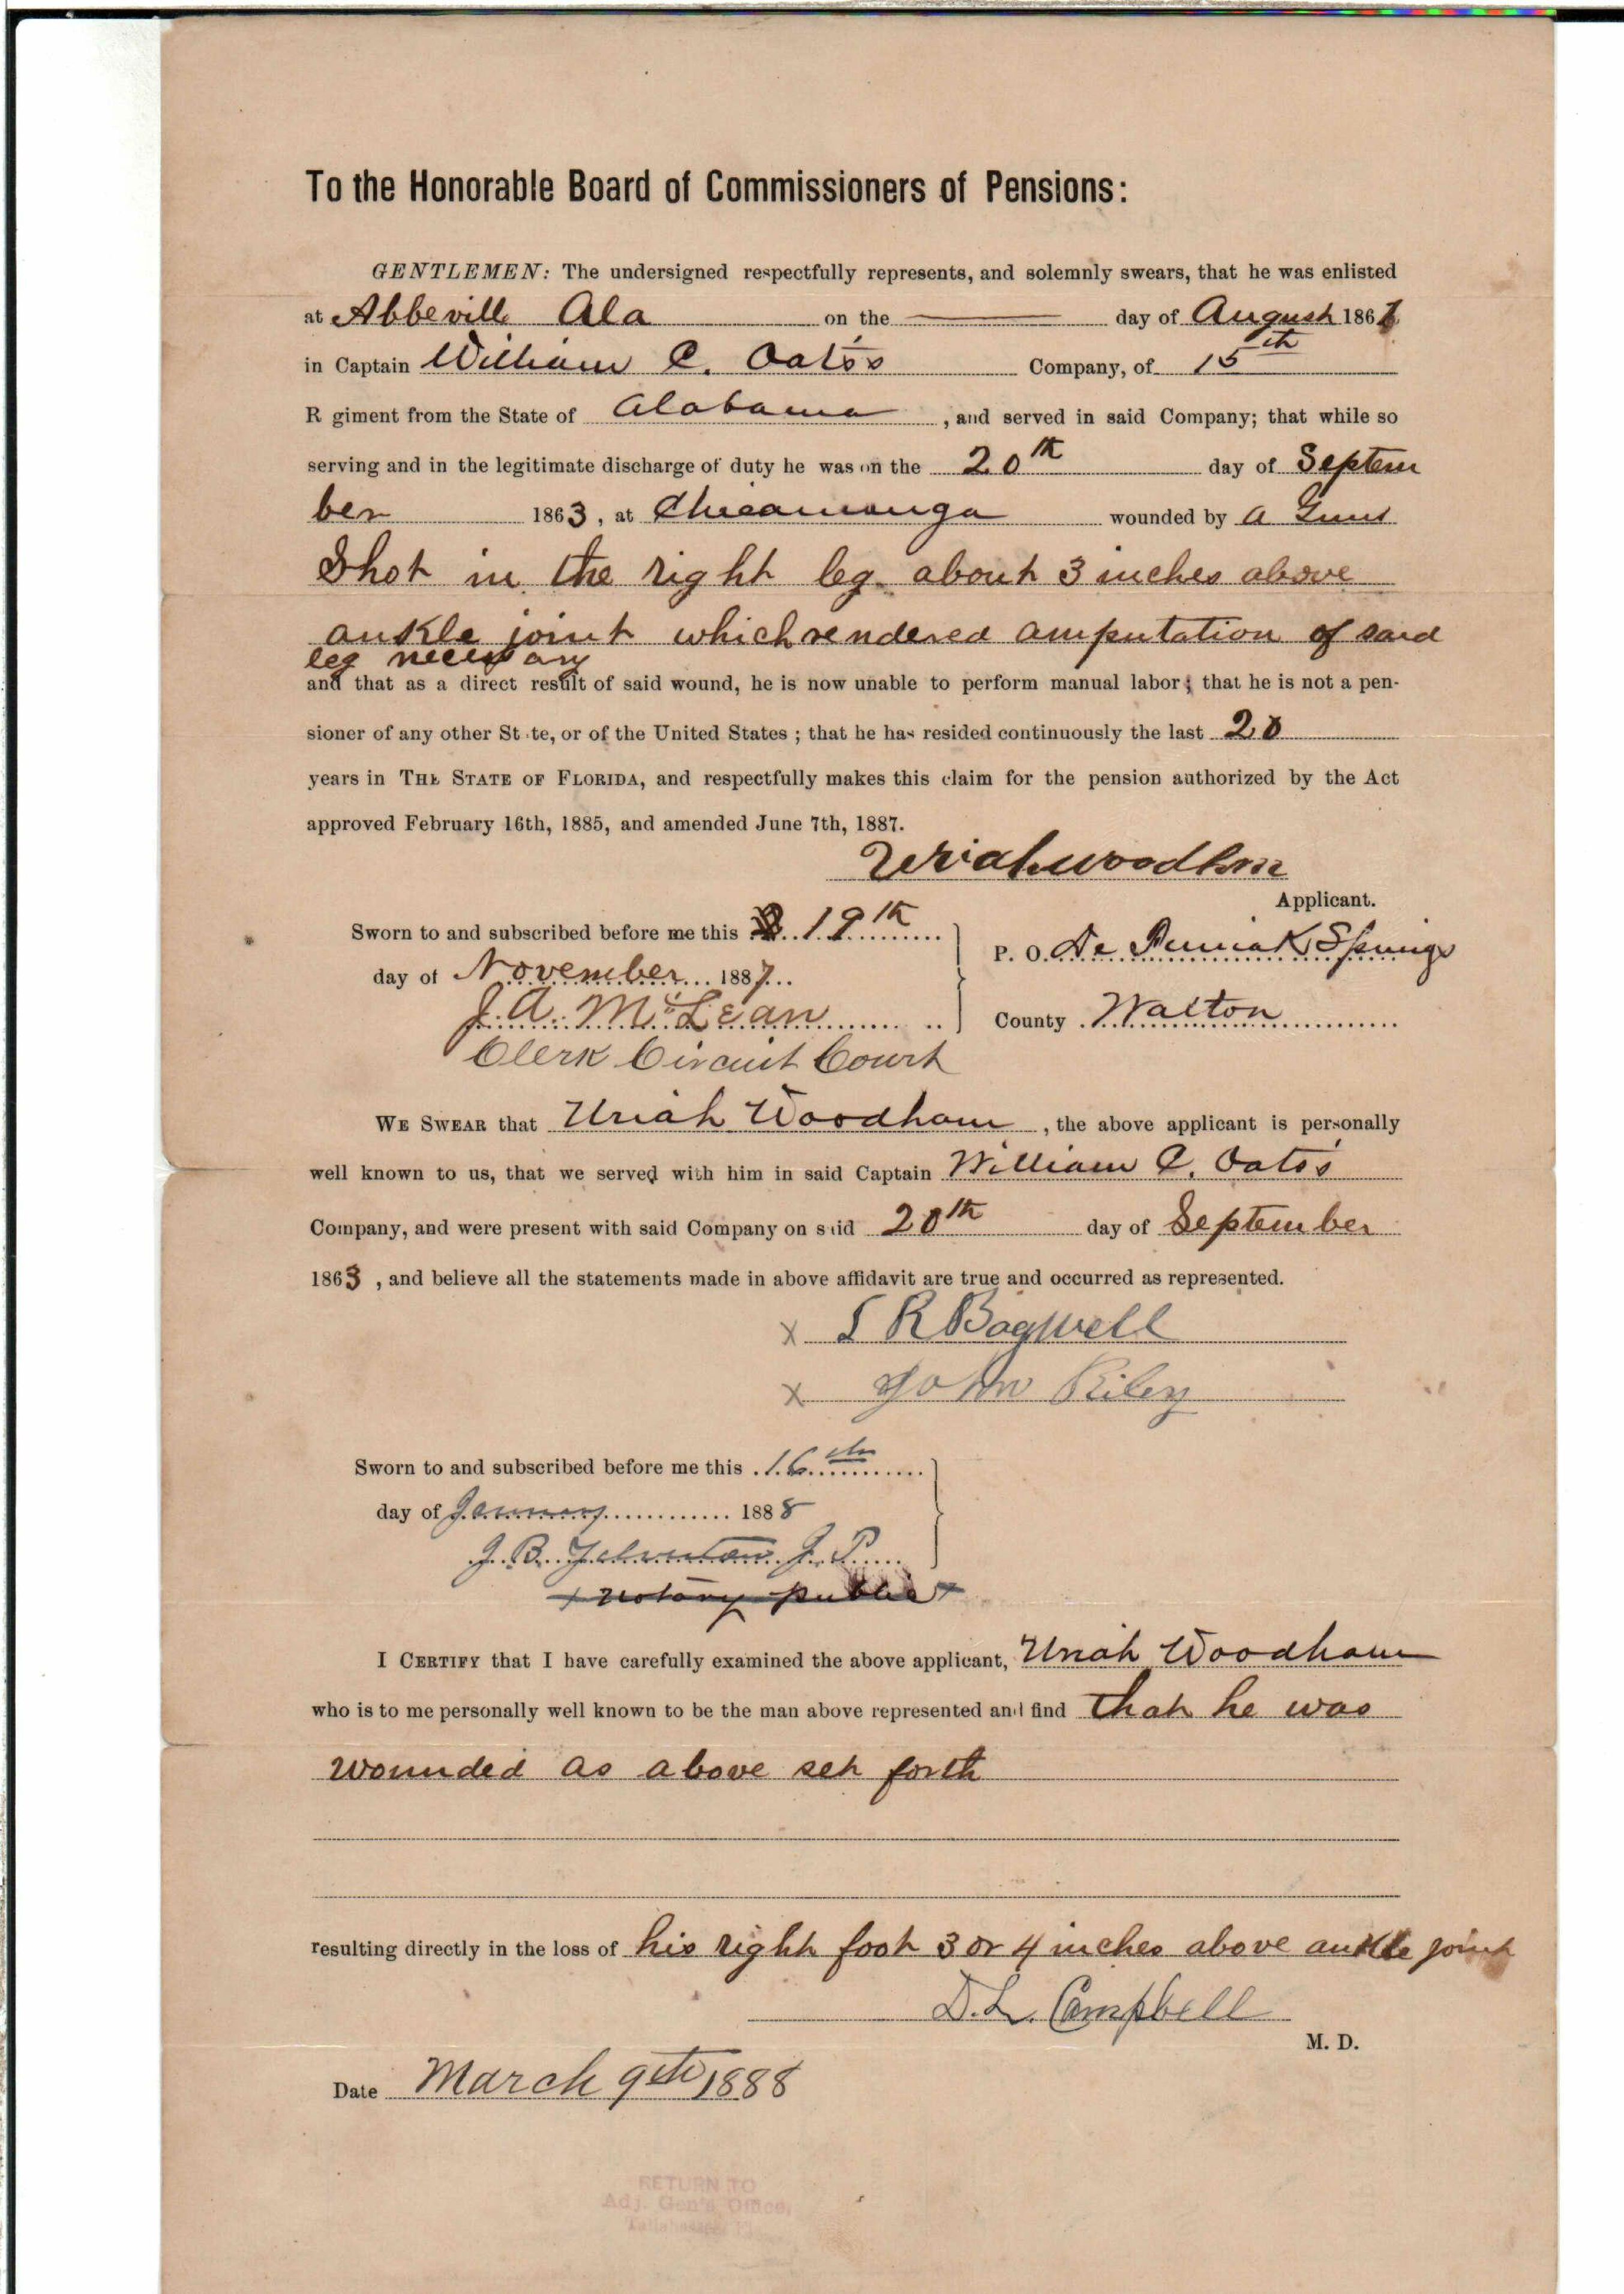 To the Honorable Board of Commissioners of Pensions:
GENTLEMEN: The undersigned respectfully represents, and solemnly swears, that he was enlisted
at Abbeville Ala on the day of August 1861
in Captain William C. Oates Company, of 15th
R giment from the State of Alabama, and served in said Company; that while so
serving and in the legitimate discharge of duty he was on the 20th day of Septem
ber 1863, at Chicamauga wounded by a Gun
Shot in the right leg about 3 inches above
ankle joint which rendered amputation of said
leg necessary
and that as a direct result of said wound, he is now unable to perform manual labor; that he is not a pen-
sioner of any other St te, or of the United States; that he has resided continuously the last 20
years in THE STATE OF FLORIDA, and respectfully makes this claim for the pension authorized by the Act
approved February 16th, 1885, and amended June 7th, 1887.
Uriah Woodham
Applicant.
Sworn to and subscribed before me this 19th
day of November 1887
J. A. McLean
Clerk Circuit Court
P. O. De Funiak Springs
County Walton
WE SWEAR that Uriah Woodham, the above applicant is personally
well known to us, that we served with him in said Captain William C. Oates
Company, and were present with said Company on said 20th day of September
1863, and believe all the statements made in above affidavit are true and occurred as represented.
x S R Bagwell
x John Riley
Sworn to and subscribed before me this 16th
day of January 1888
J. B. J. P.
x notary public x
I CERTIFY that I have carefully examined the above applicant, Uriah Woodham
who is to me personally well known to be the man above represented and find that he was
wounded as above set forth
resulting directly in the loss of his right foot 3 or 4 inches above ankle joint
D. L. Campbell
M. D.
Date March 9th 1888
RETURN TO
Adj. Gen's Office,
Tallahassee